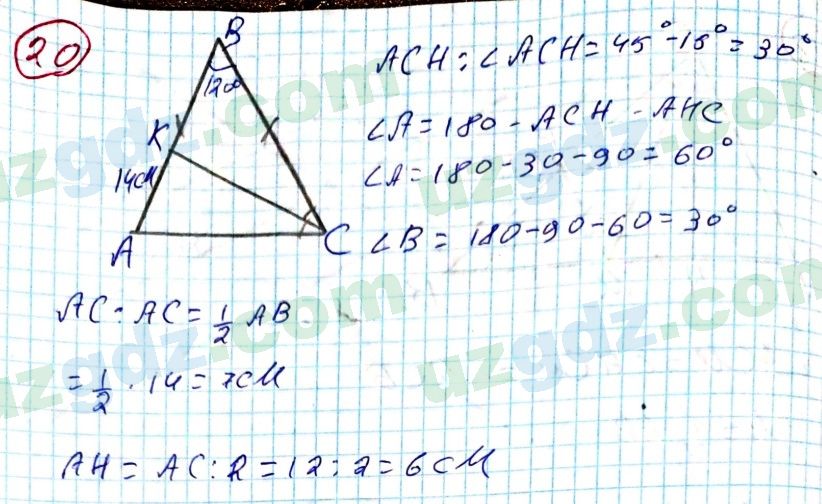 20
B
120
K
14см
A
C
ACH: ∠ACH = 45° - 15° = 30°
∠A = 180 - ACH - AHC
∠A = 180 - 30 - 90 = 60°
∠B = 180 - 90 - 60 = 30°
AC: AC = 1/2 AB
= 1/2 · 14 = 7см
AH = AC : 2 = 12 : 2 = 6 см
uzgdz.com
uzgdz.com
uzgdz.com
uzgdz.com